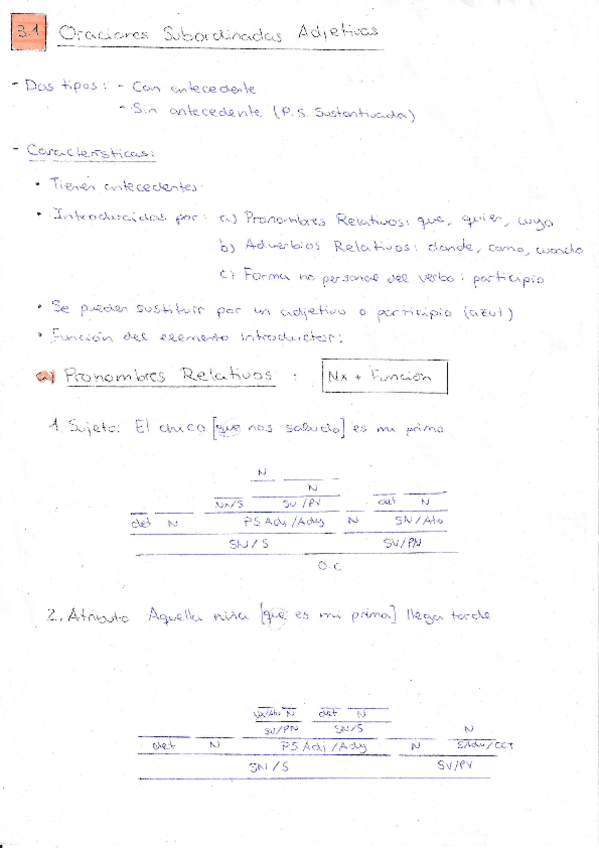 3.1 Oraciones Subordinadas Adjetivas
- Dos tipos: - Con antecedente
- Sin antecedente (P.S. Sustantivada)
- Características:
• Tienen antecedentes
• Introducidas por: a) Pronombres Relativos: que, quien, cuyo
b) Adverbios Relativos: donde, como, cuando
c) Forma no personal del verbo: participio
• Se pueden sustituir por un adjetivo o participio (azul)
• Función del elemento introductor:
a) Pronombres Relativos : Nx + Función
1. Sujeto: El chico [que nos saludo] es mi primo
N
N
Nx/S SV/PV det N
det N PS Adj/Ady N SN/Ato
SN/S SV/PN
O.C
2. Atributo Aquella niña [que es mi prima] llega tarde
Nx/Ato N det N
SV/PN SN/S N
det N PS Adj/Ady N SAdv/CCT
SN/S SV/PV